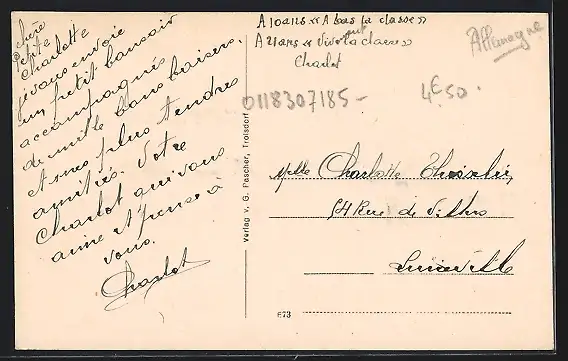 Chère
Petite
Charlotte
je vous envoie
un petit bonsoir
accompagnés
de mille bons baisers.
et mes plus tendres
amitiés. Votre
Charlot qui vous
aime et pense à
vous.
Charlot
A 10 ans « A bas la classe »
A 21 ans « Vive la classe »
Charlot
Allemagne
0118307185-
4€50.
Verlag v. G. Pascher, Troisdorf
Mlle Charlotte
54 Rue de
Lunéville
673